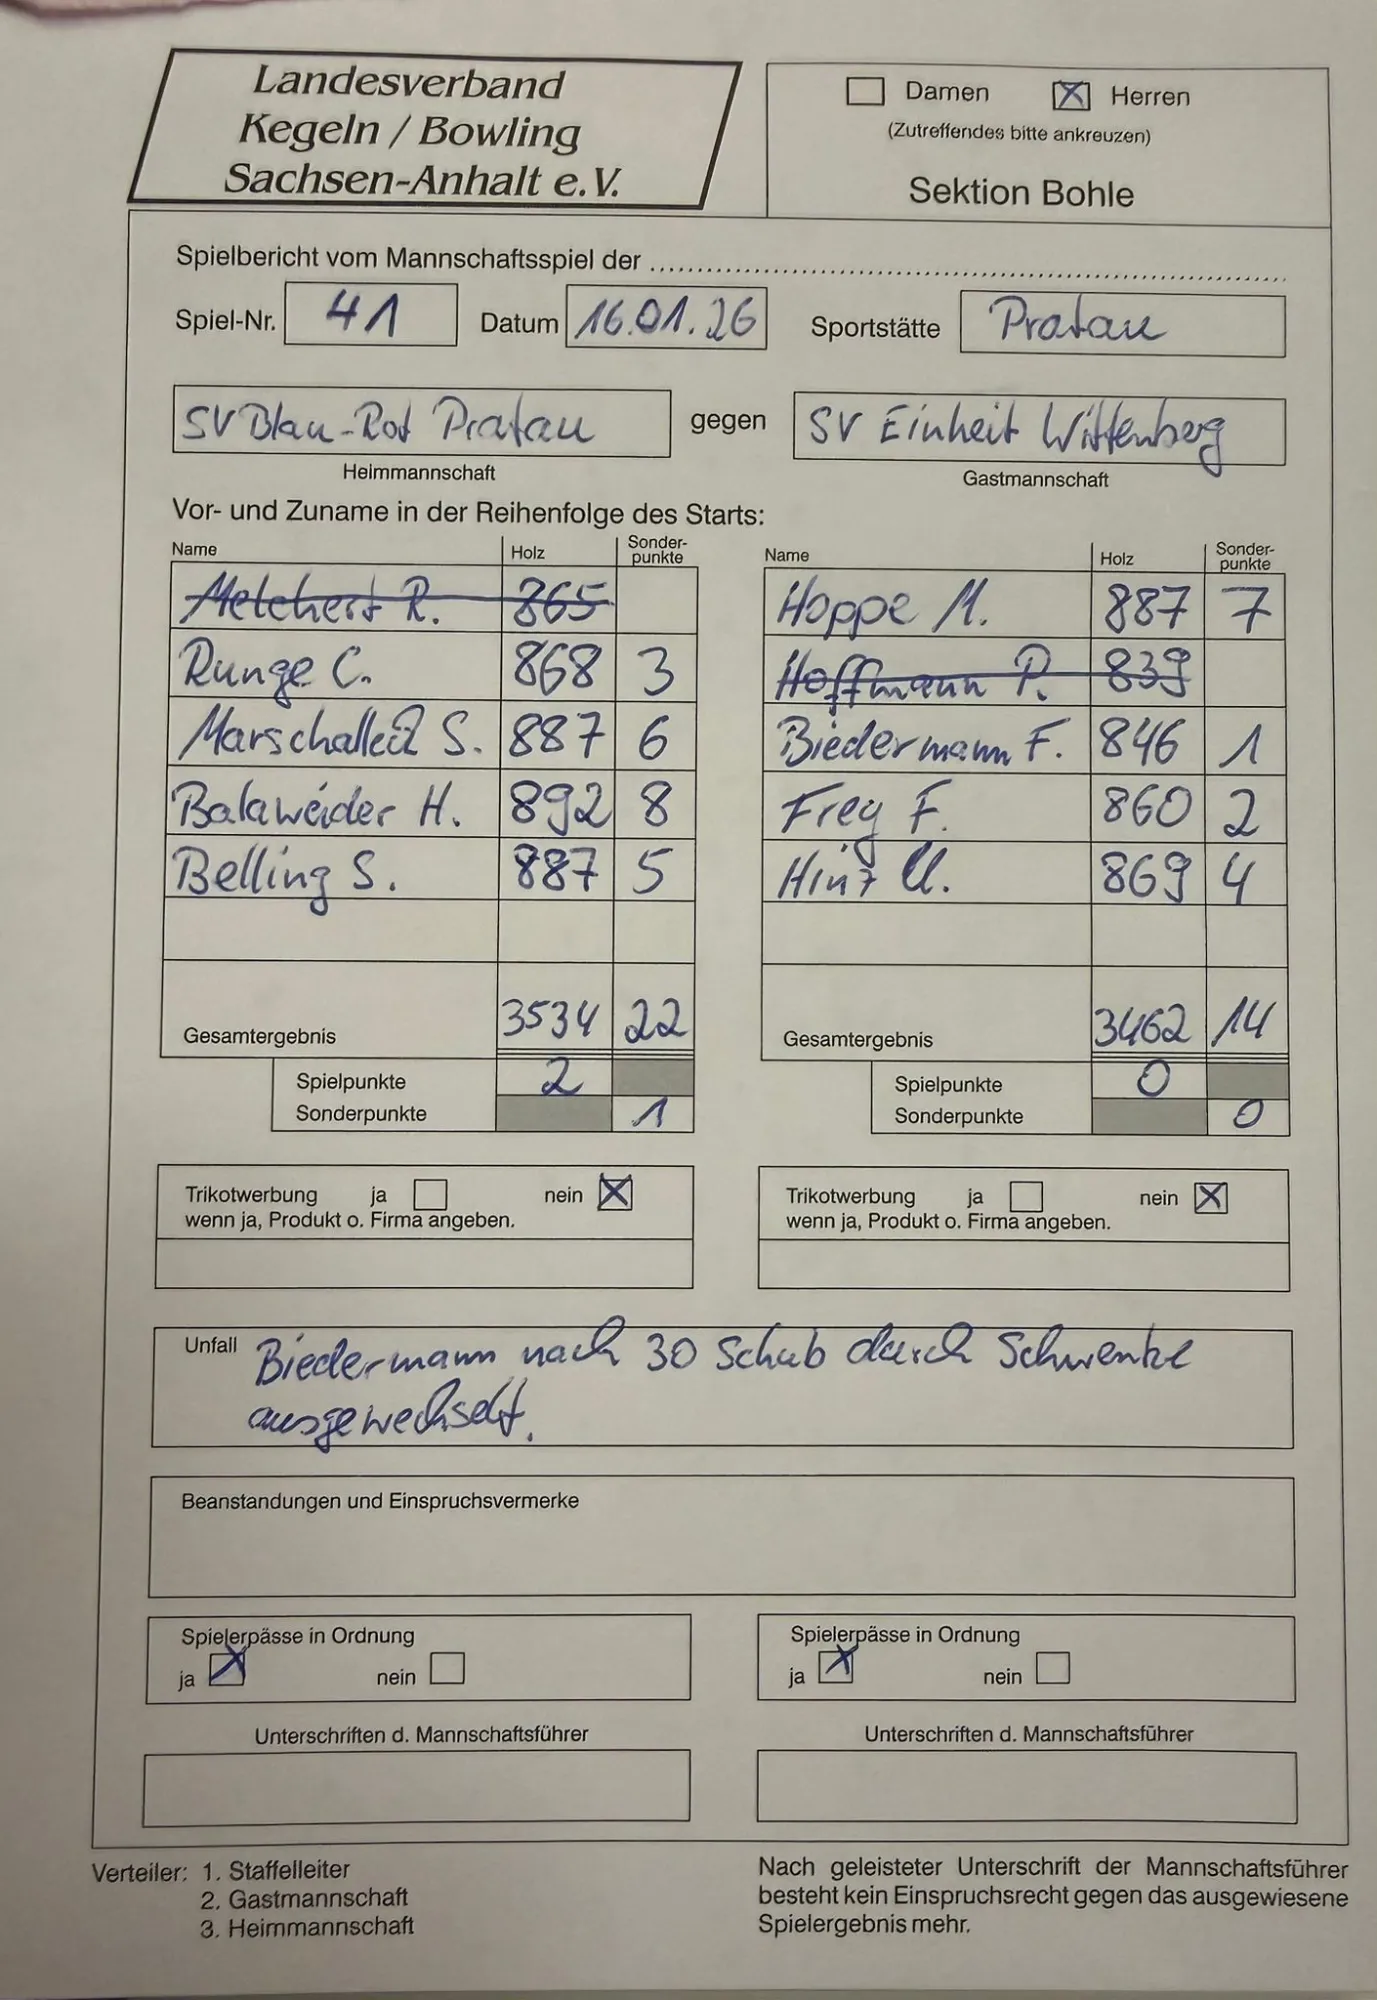 Landesverband
Kegeln / Bowling
Sachsen-Anhalt e.V.
Damen Herren
(Zutreffendes bitte ankreuzen)
Sektion Bohle
Spielbericht vom Mannschaftsspiel der
Spiel-Nr. 41 Datum 16.01.26 Sportstätte Pratau
SV Blau-Rot Pratau gegen SV Einheit Wittenberg
Heimmannschaft Gastmannschaft
Vor- und Zuname in der Reihenfolge des Starts:
Name Holz Sonder-punkte Name Holz Sonder-punkte
Melchert R. 865 Hoppe M. 887 7
Runge C. 868 3 Hoffmann P. 839
Marschalleck S. 887 6 Biedermann F. 846 1
Balaweider H. 892 8 Frey F. 860 2
Belling S. 887 5 Hinz U. 869 4
Gesamtergebnis 3534 22 Gesamtergebnis 3462 14
Spielpunkte 2 Spielpunkte 0
Sonderpunkte 1 Sonderpunkte 0
Trikotwerbung ja nein Trikotwerbung ja nein
wenn ja, Produkt o. Firma angeben. wenn ja, Produkt o. Firma angeben.
Unfall Biedermann nach 30 Schub durch Schwenke
ausgewechselt.
Beanstandungen und Einspruchsvermerke
Spielerpässe in Ordnung Spielerpässe in Ordnung
ja nein ja nein
Unterschriften d. Mannschaftsführer Unterschriften d. Mannschaftsführer
Verteiler: 1. Staffelleiter
2. Gastmannschaft
3. Heimmannschaft
Nach geleisteter Unterschrift der Mannschaftsführer
besteht kein Einspruchsrecht gegen das ausgewiesene
Spielergebnis mehr.